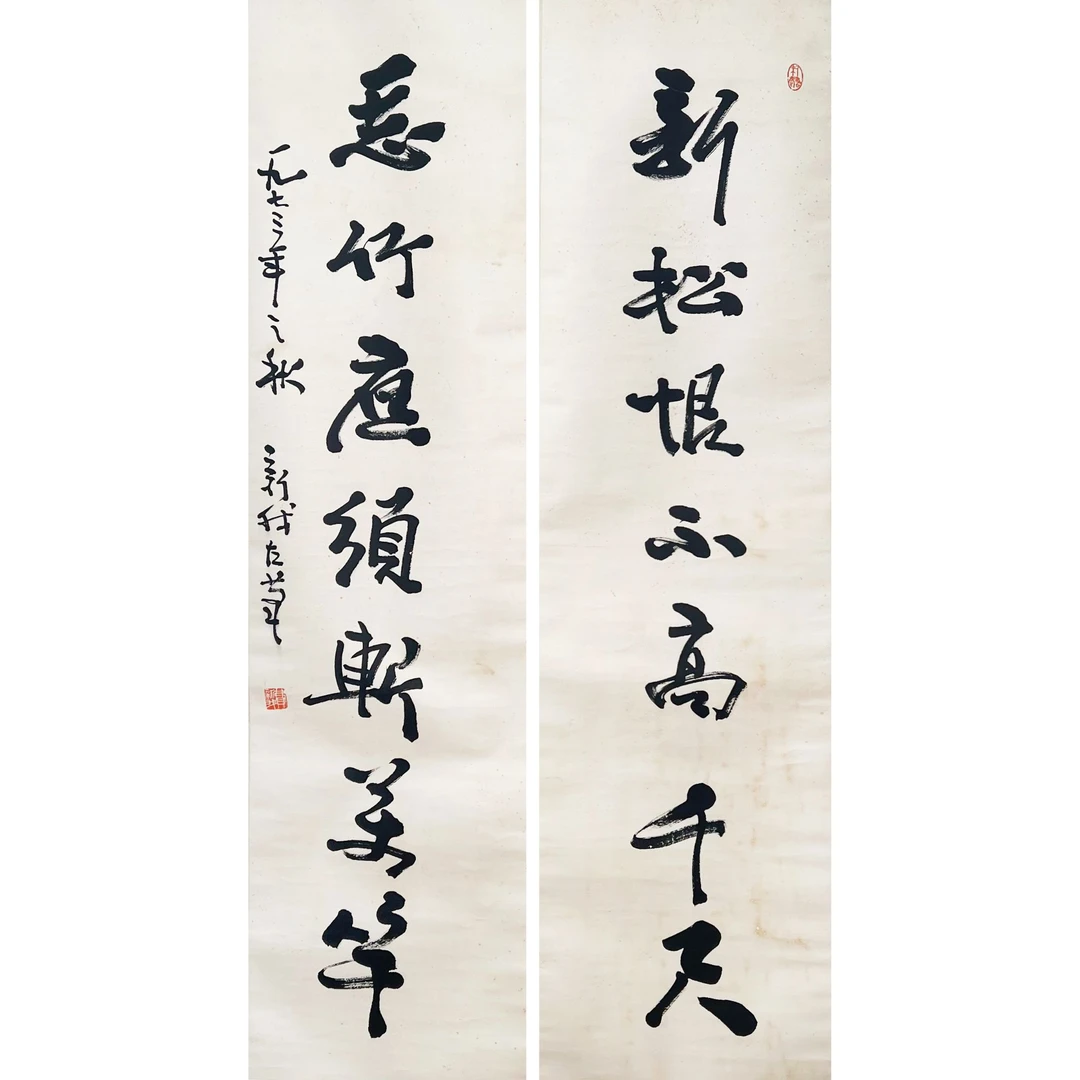 新松恨不高千尺
惡竹應須斬萬竿
一九七三年之秋 新我左筆